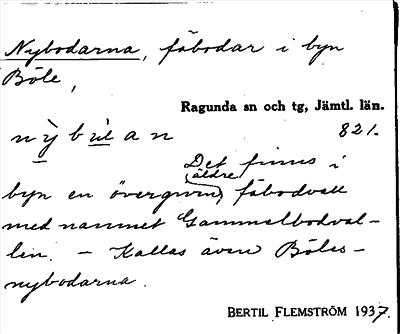 Nybodarna, fäbodar i byn
Böle,
Ragunda sn och tg, Jämtl. län.
821.
Det finns i
byn en äldre övergiven fäbodvall
med namnet Gammelbodval-
len. – Kallas även Böles-
nybodarna.
BERTIL FLEMSTRÖM 1937.